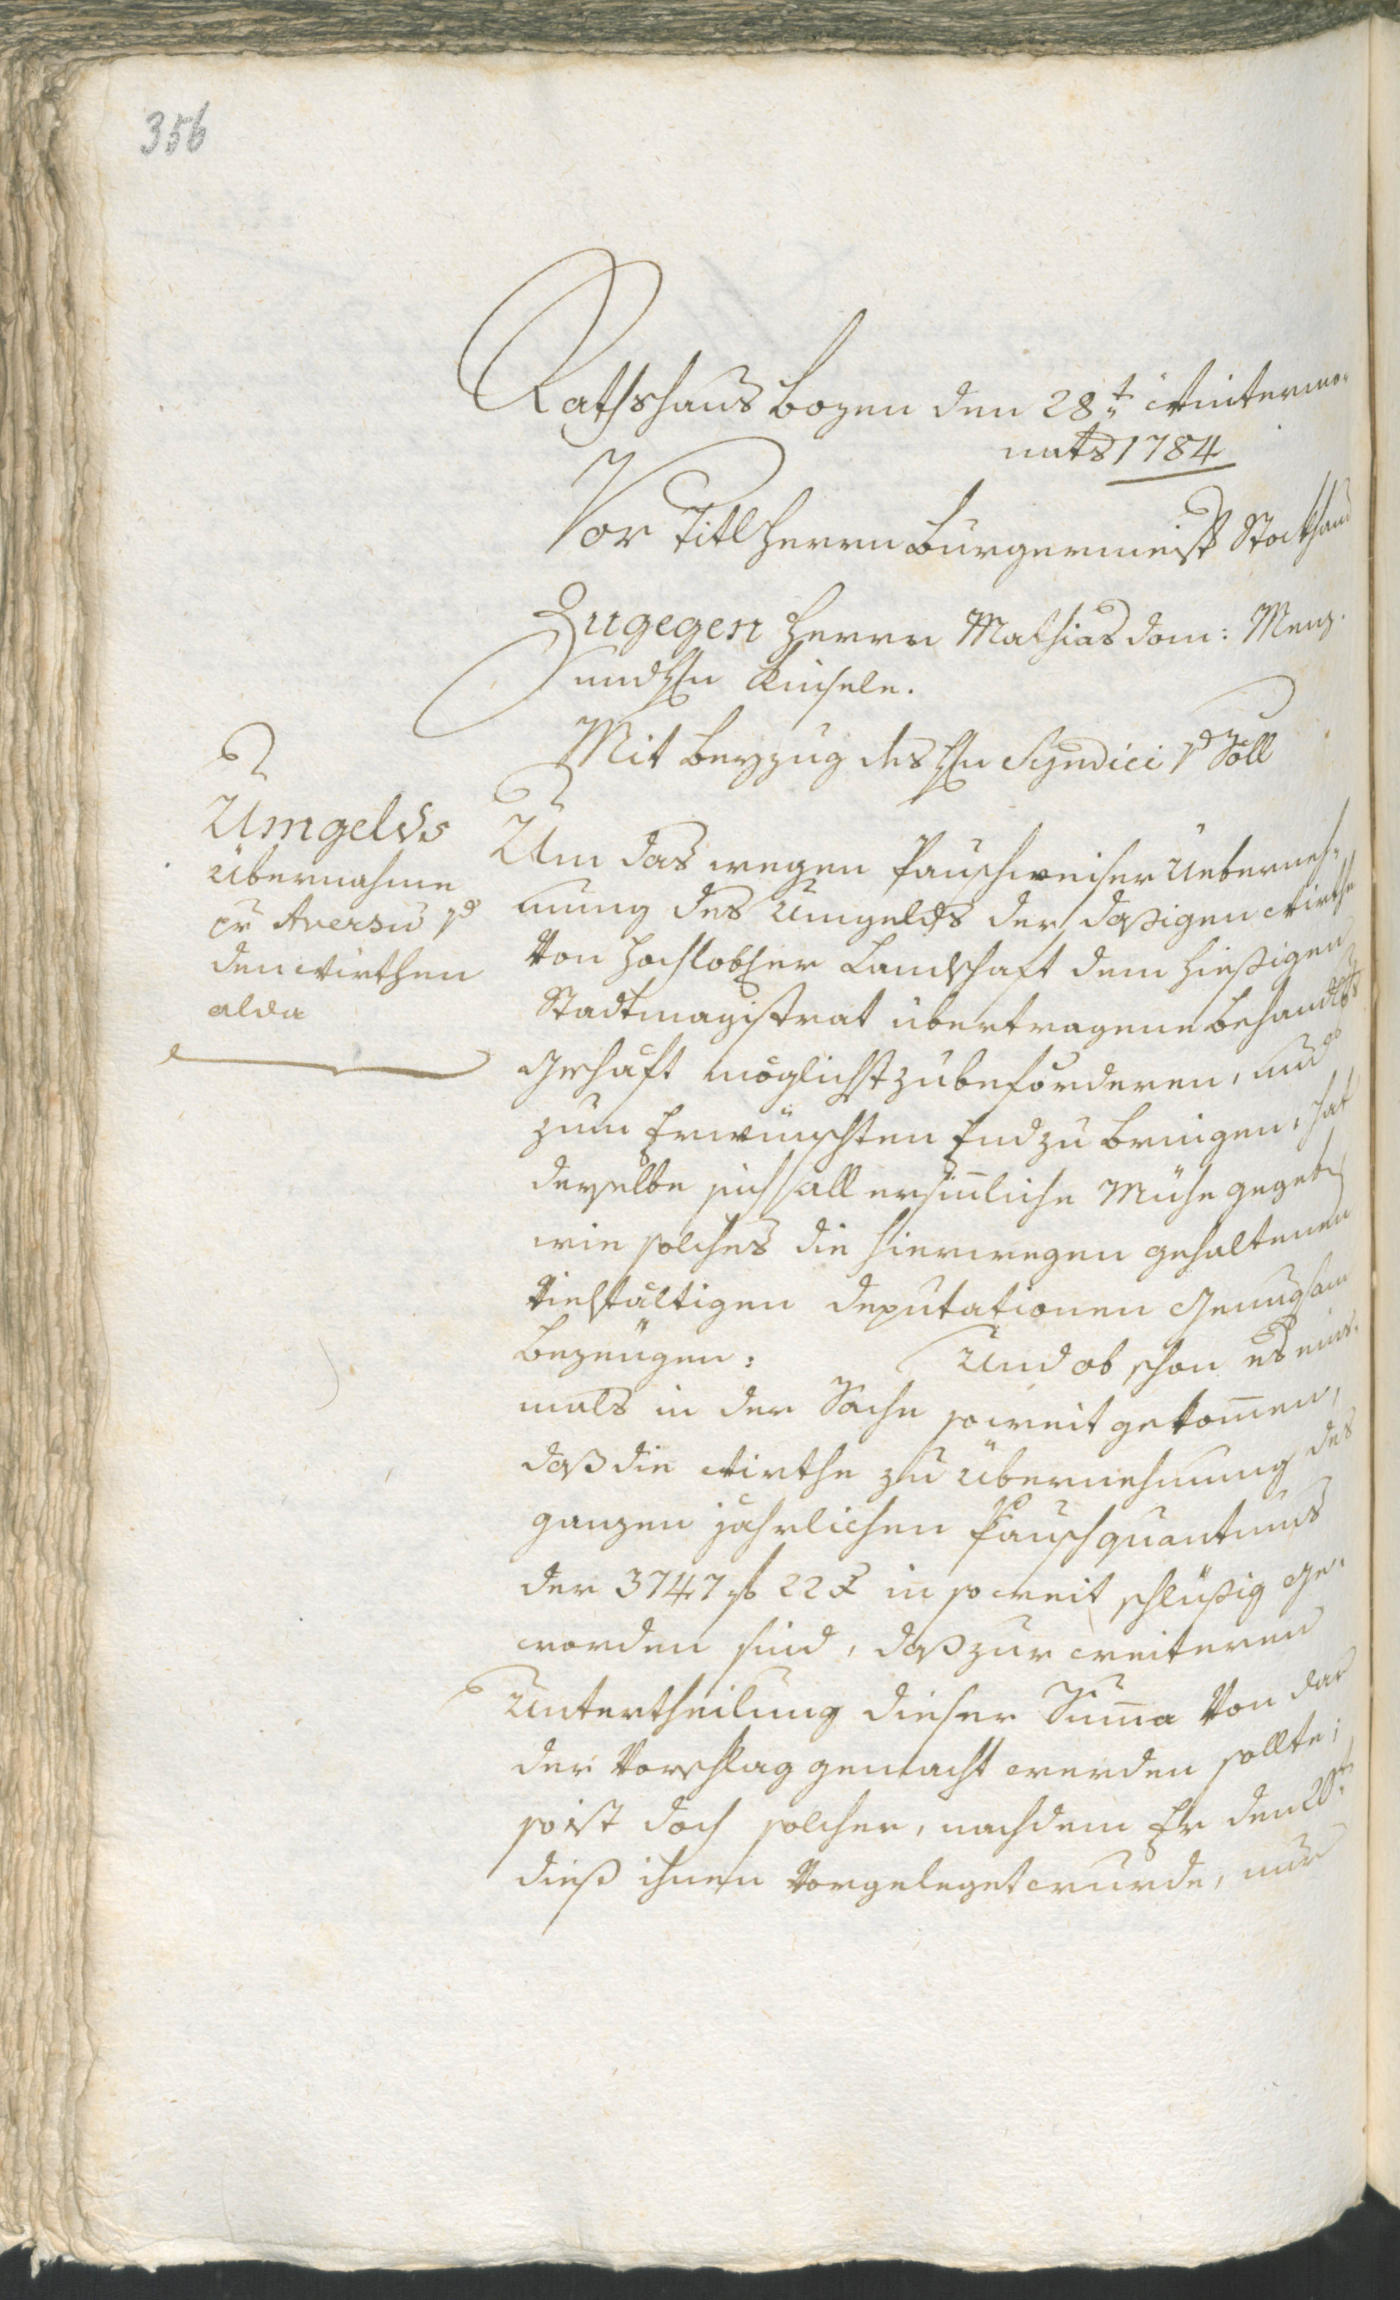 356
Rathshaus Bozen den 28.t Wintermo-
nats 1784
Vor Titl Herrn Burgermeist Stockhau
Zugegen Herrn Mathias Dom: Menz.
und Hn Kinsele.
Mit Beyzug des Hn Syndici Söll
Umgelds
übernahme
pr Aversu
den Wirthen
alda
Um das wegen Pauschweiser Ueberneh-
mung des Umgelds der daßigen Wirthe
von Hochloblher Landschaft dem hießigen
Stadtmagistrat übertragene Behandlgs
Geschäft möglichst zubeforderen, und
zum Erwünschten End zu bringen, hat
derselbe sich all ersinnliche Mühe gegeben
wie solches die hierwegen gehaltenen
vielfältigen Deputationen genugsam
bezeugen: Und ob schon es ein-
mals in der Sache so weit gekommen,
daß die Wirthe zu übernehmung des
ganzen jährlichen Pauschquantums
der 3747 f 22 x in so weit schlüßig ge-
worden sind, daß zur weiteren
Untertheilung dieser Summa von dar
der Vorschlag gemacht werden sollte;
so ist doch solcher, nachdem Er den
dieß ihnen vorgeleget wurde, nur